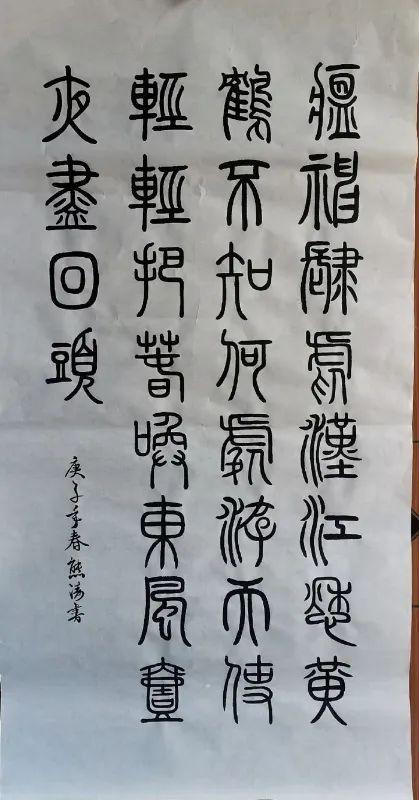 瘟禍肆虐漢江愁黃
鶴不知何處游天使
輕輕把春喚東風壹
夜盡回頭
庚子季春熊書